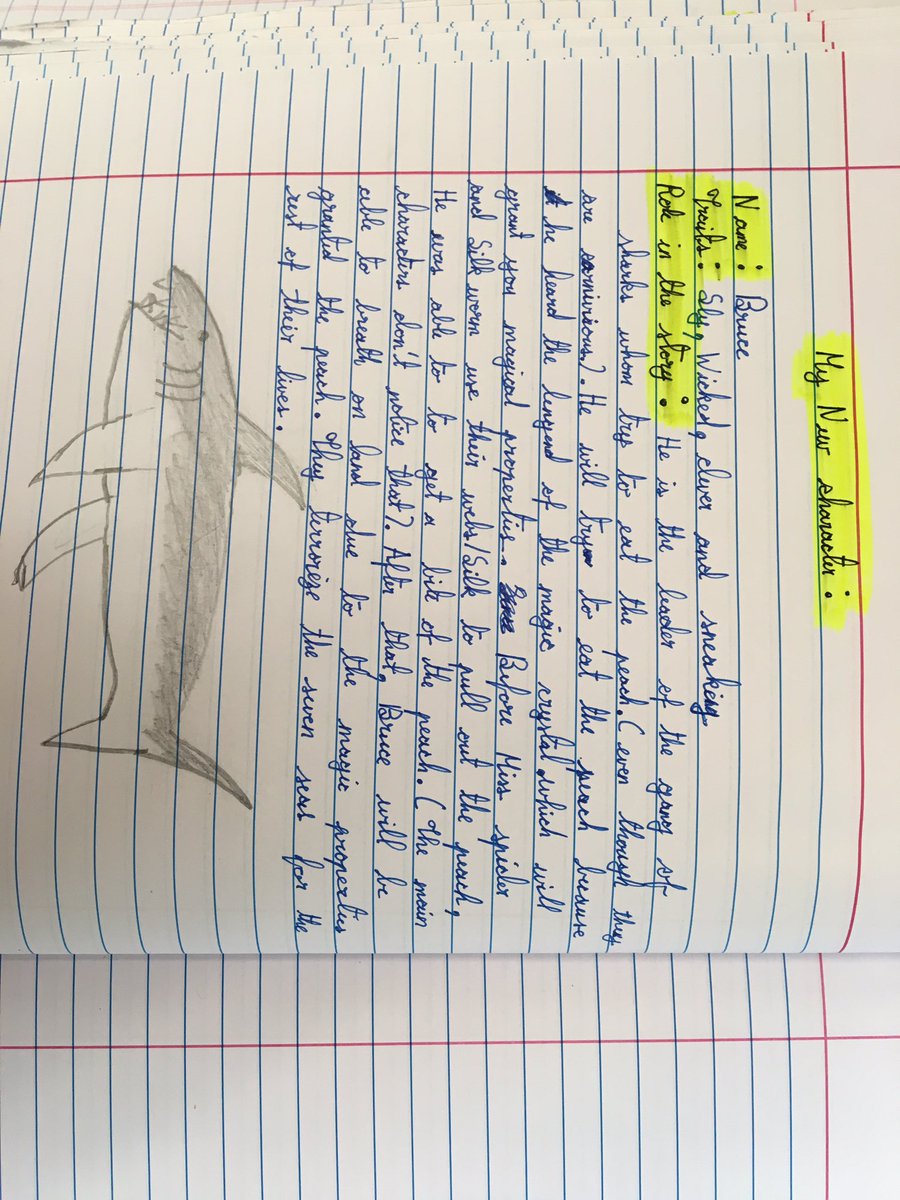 My New character :
Name : Bruce
Traits : Sly, Wicked, clever and sneaking
Role in the story : He is the leader of the gang of
sharks whom try to eat the peach. ( even though they
are carnivious). He will try to eat the peach because
he heard the lengend of the magic crystal which will
grant you magical properties. Before Miss spider
and Silk worm use their webs/Silk to pull out the peach,
He was able to to get a bite of the peach. ( The main
characters don't notice that). After that, Bruce will be
able to breath on land due to the magic properties
granted the peach. They terrorize the seven seas for the
rest of their lives.